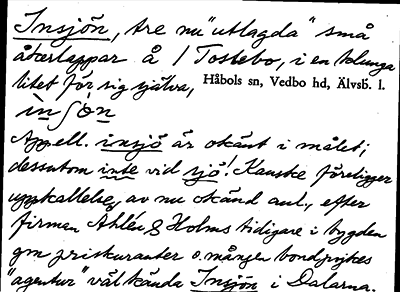 Insjön, tre nu "utlagda" små
åkerlappar å 1 Tostebo, i en klunga
litet för sig själva, Håbols sn, Vedbo hd, Älvsb. l.
ìnʃö̀n
Appell. insjö är okänt i målet;
dessutom inte vid sjö! Kanske föreligger
uppkallelse av nu okänd anl., efter
firman Åhlén & Holms tidigare i bygden
gm priskuranter o. mången bondpojkes
"agentur" välkända Insjön i Dalarna.